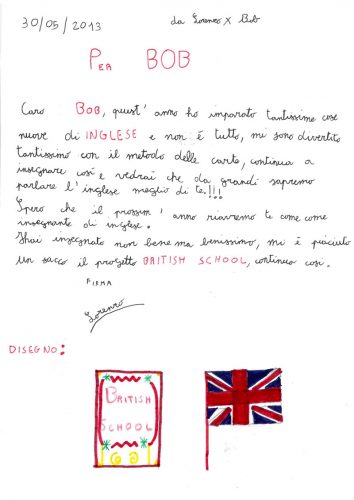 30/05/2013
da Lorenzo X Bob
PER BOB
Caro BOB, quest' anno ho imparato tantissime cose
nuove di INGLESE e non é tutto, mi sono divertito
tantissimo con il metodo delle carte, continua a
insegnare così e vedrai che da grandi sapremo
parlare l'inglese meglio di te.!!!
Spero che il prossim' anno riavremo te come come
insegnante di inglese.
Hai insegnato non bene ma benissimo, mi é piaciuto
un sacco il progetto BRITISH SCHOOL, continua così.
FIRMA
Lorenzo
DISEGNO:
BRITISH
SCHOOL